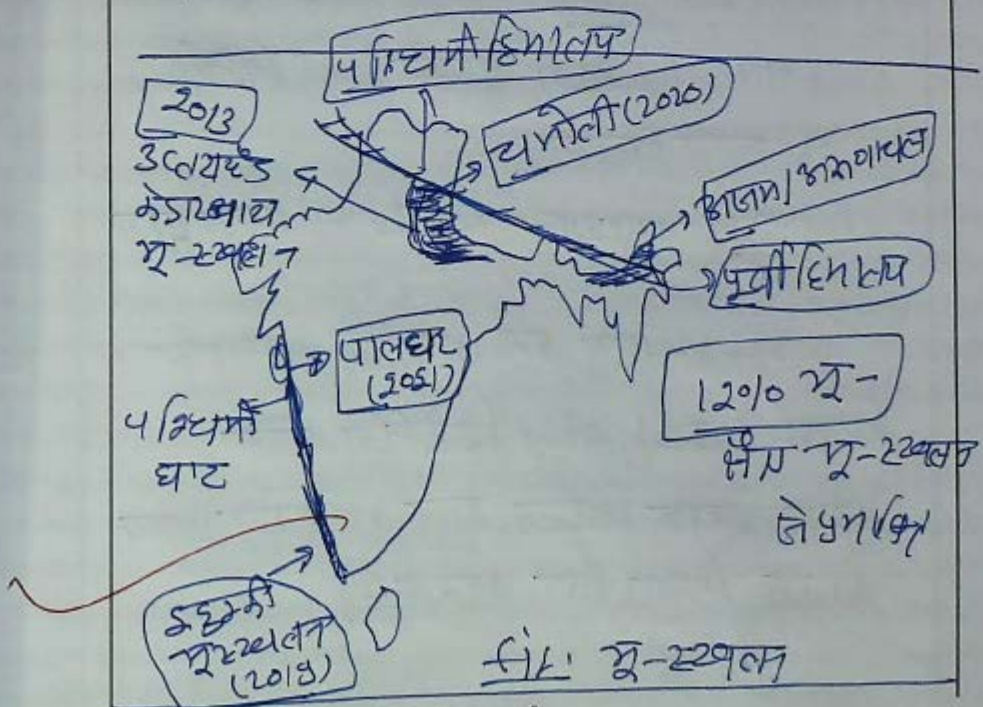 पश्चिमी हिमालय
2013
उत्तराखंड
केदारनाथ
भू-स्खलन
चमोली (2020)
असम/अरुणाचल
पूर्वी हिमालय
पालघर
(2021)
पश्चिमी
घाट
12% भू-
क्षेत्र भू-स्खलन
से प्रभावित
भूस्खलन
fig: भू-स्खलन